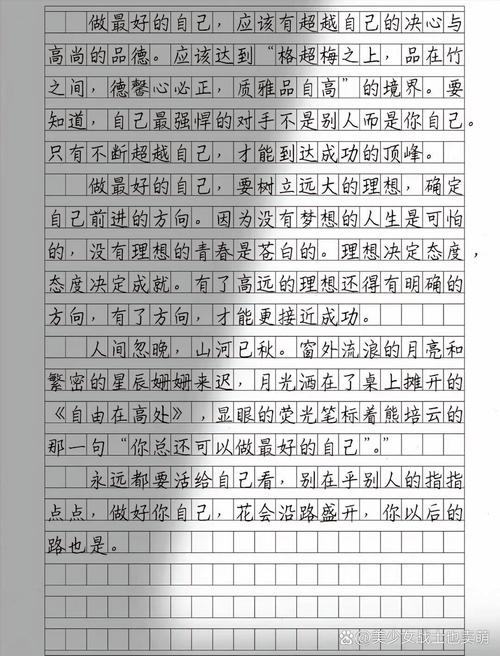 做最好的自己，应该有超越自己的决心与
高尚的品德。应该达到“格超梅之上，品在竹
之间，德馨心必正，质雅品自高”的境界。要
知道，自己最强悍的对手不是别人而是你自己。
只有不断超越自己，才能到达成功的顶峰。
做最好的自己，要树立远大的理想，确定
自己前进的方向。因为没有梦想的人生是可怕
的，没有理想的青春是苍白的。理想决定态度，
态度决定成就。有了高远的理想还得有明确的
方向，有了方向，才能更接近成功。
人间忽晚，山河已秋。窗外流浪的月亮和
繁密的星辰姗姗来迟，月光洒在了桌上摊开的
《自由在高处》，显眼的荧光笔标着熊培云的
那一句“你总还可以做最好的自己”。”
永远都要活给自己看，别在乎别人的指指
点点，做好你自己，花会沿路盛开，你以后的
路也是。
@美少女战士也卖萌